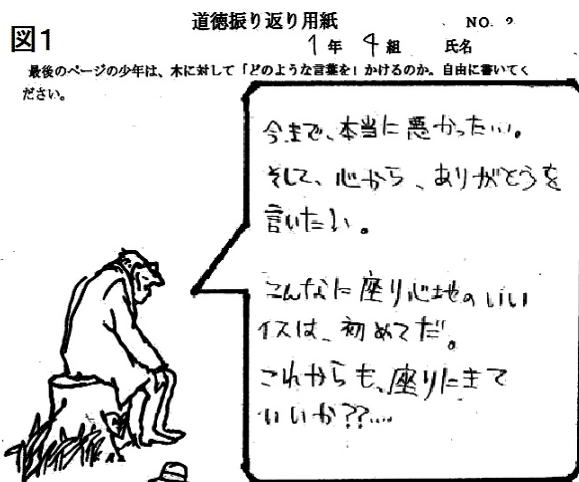 図1
道徳振り返り用紙
NO.
1年 4組 氏名
最後のページの少年は、木に対して「どのような言葉を」かけるのか。自由に書いてく
ださい。
今まで、本当に悪かった
そして、心から、ありがとうを
言いたい。
こんなに座り心地のいい
イスは、初めてだ。
これからも、座りにきて
いいか??....